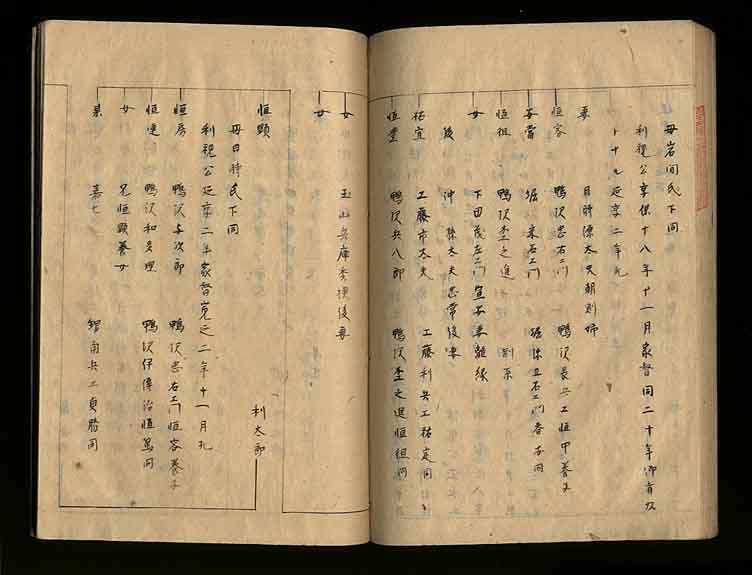 母岩間氏下同
利視公享保十八年十一月家督同二十年
十九延享二年死
妻 目時源太夫朝則姉
恒客 鴨沢忠右エ門 鴨沢長兵エ恒中養子
安當 堀 右エ門 堀 右エ門 子同
恒祖 鴨沢杢之進 別系
女 下田茂左エ門宣 妻離縁
後 沖 弥太夫忠常後妻
祐宣 工藤市太夫 工藤利兵エ祐定同
恒 鴨沢兵八郎 鴨沢杢之進恒祖同
女 玉山兵庫秀 後妻
女
利太郎
恒顕 母目時氏下同
利視公延享二年家督寛延二年十一月死
恒房 鴨沢与次郎 鴨沢忠右エ門恒客養子
恒 鴨沢和多理 鴨沢伊傳治恒篤同
女 兄恒顕養女
某 嘉七 兵エ 勝同